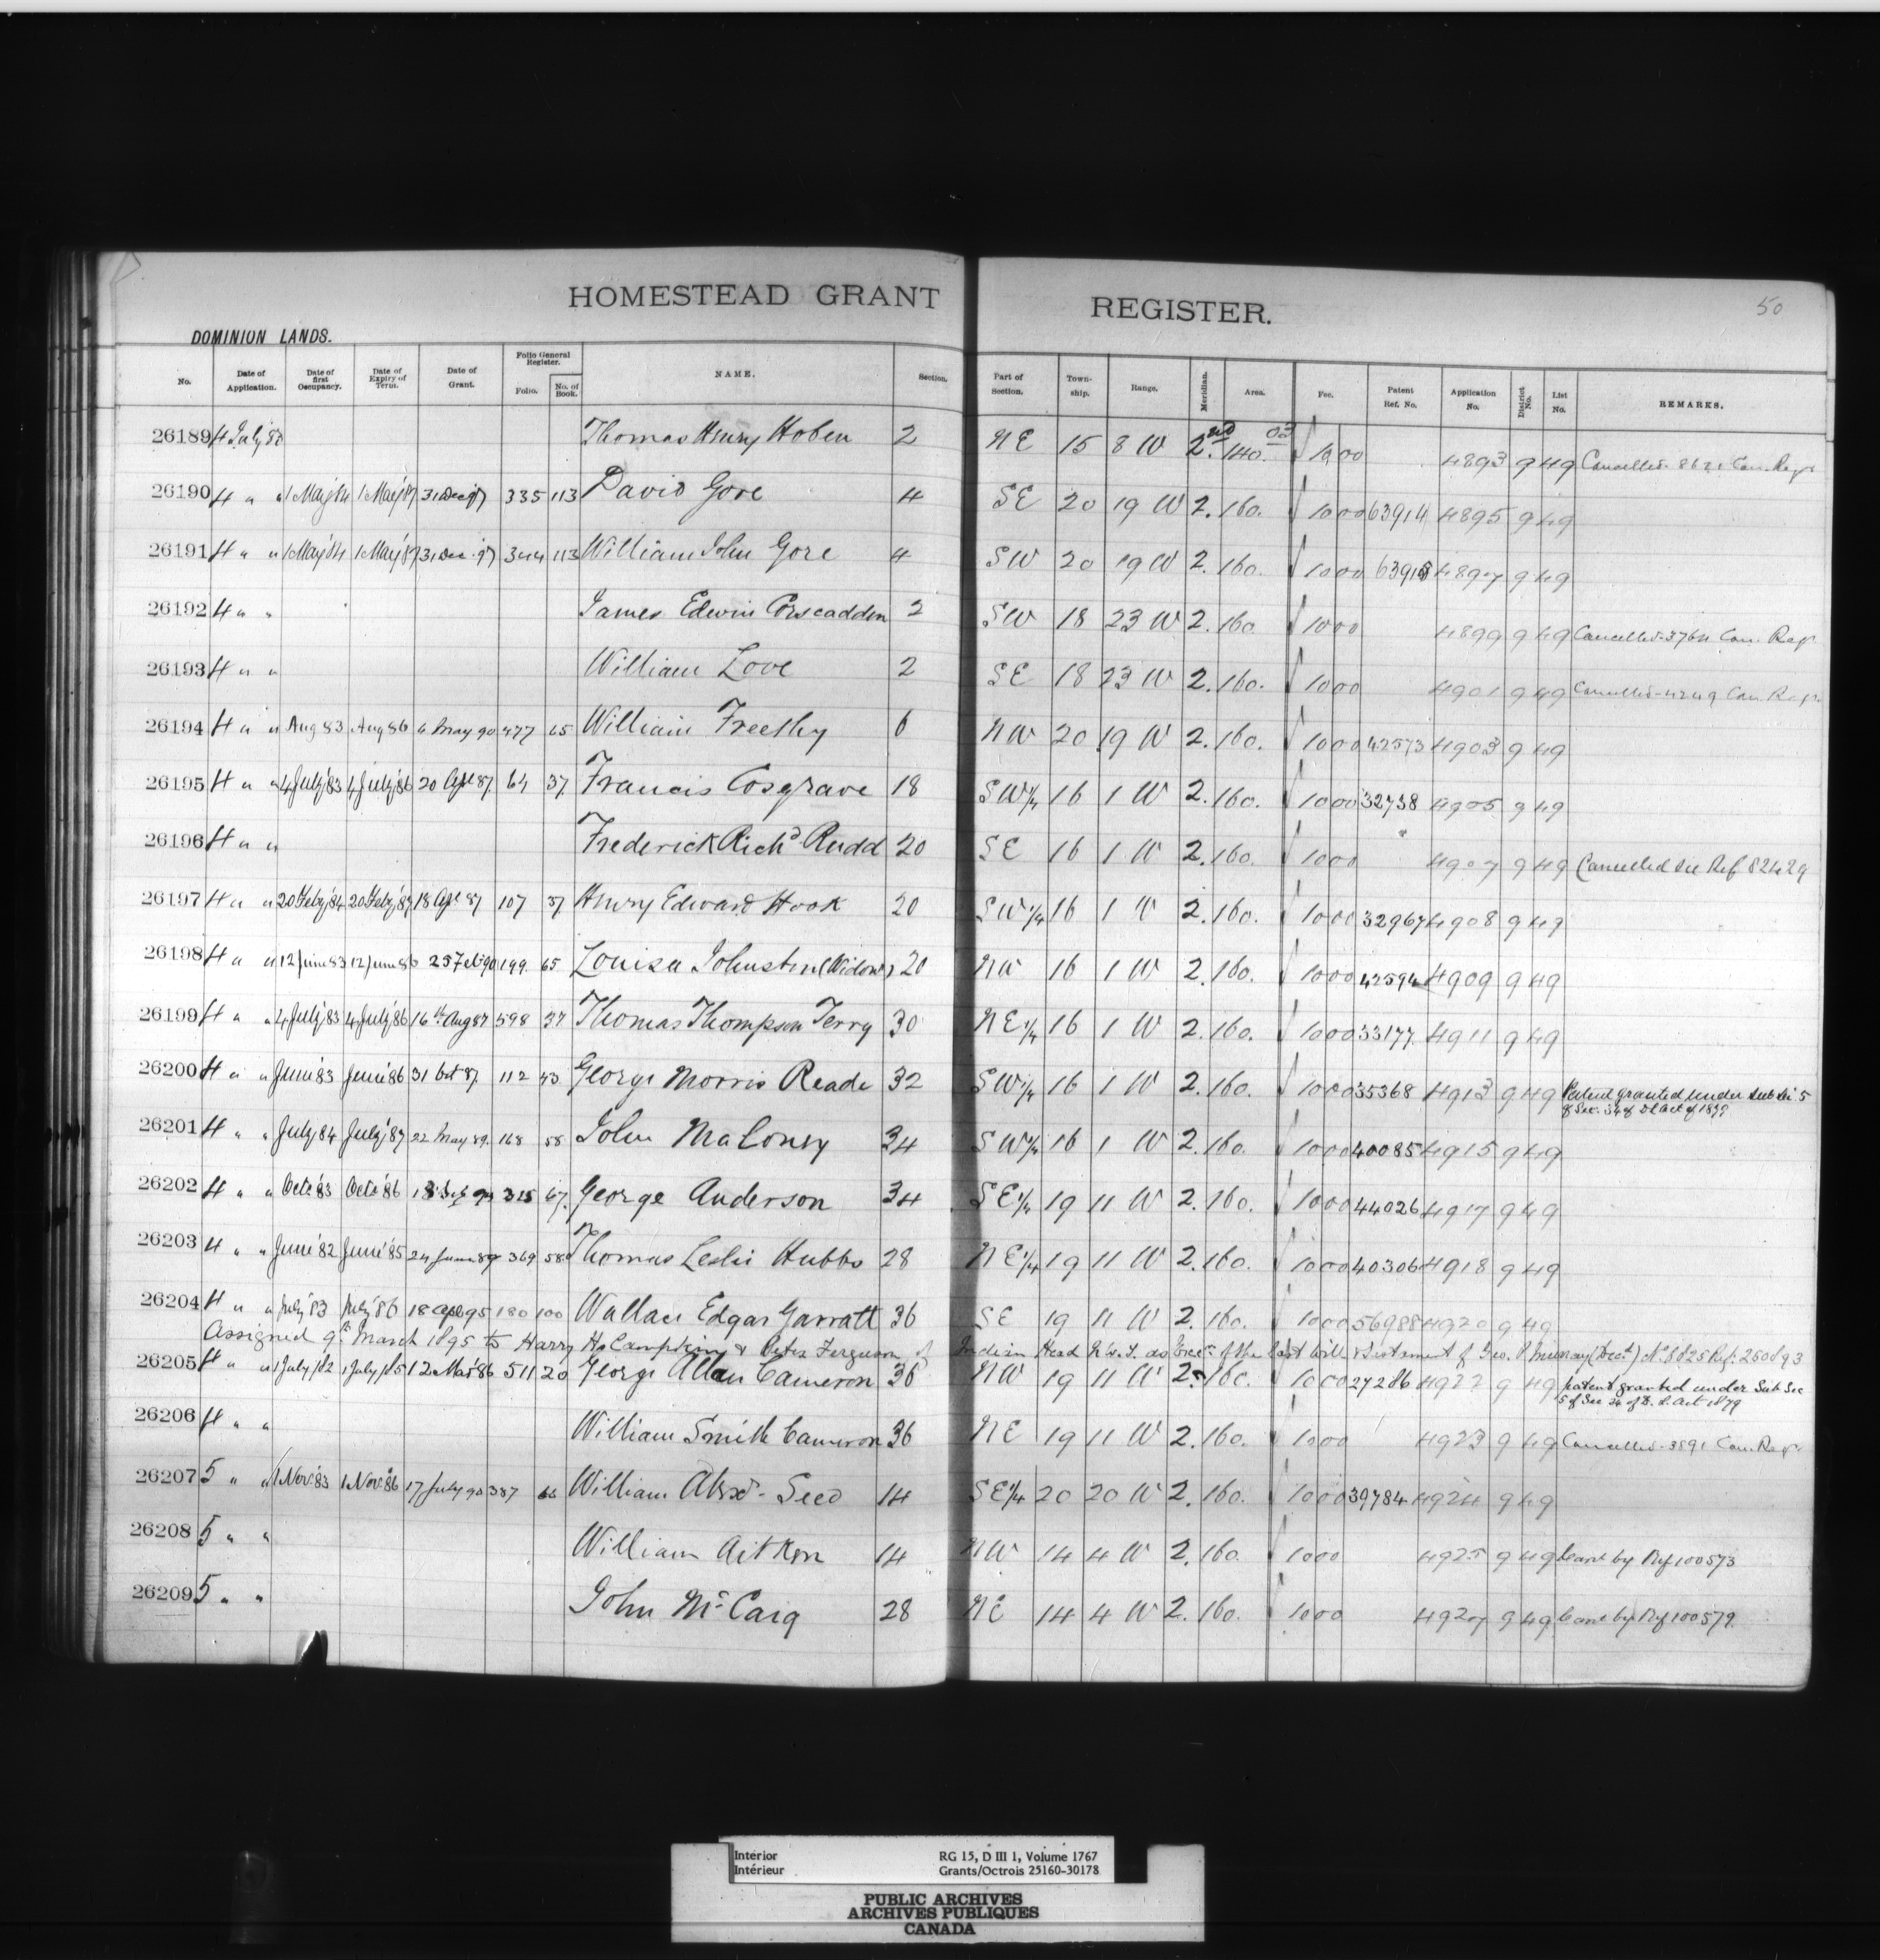 HOMESTEAD GRANT REGISTER. 50
DOMINION LANDS.
No. Date of Application. Date of first Occupancy. Date of Expiry of Term. Date of Grant. Folio General Register. Folio. No. of Book. NAME. Section. Part of Section. Town-ship. Range. Meridian. Area. Fee. Patent Ref. No. Application No. District No. List No. REMARKS.
26189 4 July Thomas Henry Hoben 2 NE 15 8 W 2nd 140. 03 10 00 4893 9 49 Cancelled Can. Regr
26190 4 " " 1 May 84 1 May 87 31 Dec 97 335 113 David Gore 4 SE 20 19 W 2. 160. 10 00 63914 4895 9 49
26191 4 " " 1 May 84 1 May 87 31 Dec 97 344 113 William John Gore 4 SW 20 19 W 2. 160. 10 00 4897 9 49
26192 4 " " James Edwin Corscadden 2 SW 18 23 W 2. 160. 10 00 4899 9 49 Cancelled 3764 Can. Regr
26193 4 " " William Love 2 SE 18 23 W 2. 160. 10 00 4901 9 49 Cancelled 4249 Can Regr
26194 4 " " Aug 83 Aug 86 6 May 90 477 65 William Freethy 6 NW 20 19 W 2. 160. 10 00 42573 4903 9 49
26195 4 " " 4 July 83 4 July 86 20 Apl 87 64 37 Francis Cosgrave 18 SW¼ 16 1 W 2. 160. 10 00 32738 4905 9 49
26196 4 " " Frederick Richd Rudd 20 SE 16 1 W 2. 160. 10 00 4907 9 49 Cancelled see Ref 82429
26197 4 " " 20 Feby 84 20 Feby 87 18 Apl 87 107 37 Henry Edward Hook 20 SW¼ 16 1 W 2. 160. 10 00 32967 4908 9 49
26198 4 " " 12 June 83 12 June 86 25 Feb 90 199 65 Louisa Johnston (Widow) 20 NW 16 1 W 2. 160. 10 00 42594 4909 9 49
26199 4 " " 4 July 83 4 July 86 16th Aug 87 598 37 Thomas Thompson Terry 30 NE¼ 16 1 W 2. 160. 10 00 33177 4911 9 49
26200 4 " " June 83 June 86 31 Oct 87 112 43 George Morris Reade 32 SW¼ 16 1 W 2. 160. 10 00 35368 4913 9 49 Patent granted under Sub Sec 5
of Sec. 34 of D L Act of 1879
26201 4 " " July 84 July 87 22 May 89 168 58 John Maloney 34 SW¼ 16 1 W 2. 160. 10 00 40085 4915 9 49
26202 4 " " Octr 83 Octr 86 315 67 George Anderson 34 SE¼ 19 11 W 2. 160. 10 00 44026 4917 9 49
26203 4 " " June 82 June 85 24 June 89 369 58 Thomas Leslie Hubbs 28 NE¼ 19 11 W 2. 160. 10 00 40306 4918 9 49
26204 4 " " July 83 July 86 18 Apl 95 180 100 Wallace Edgar Garratt 36 SE 19 11 W 2. 160. 10 00 56988 4920 9 49
Assigned 9th March 1895 to Harry H. Campkin & Peter Ferguson of Indian Head N.W.T. as Execrs of the last will & testament of Geo. P. Murray (Decd) No 8825 Ref. 260893
26205 4 " " 1 July 82 1 July 85 12 Mar 86 511 20 George Allan Cameron 36 NW 19 11 W 2. 160. 10 00 27286 4922 9 49 Patent granted under Sub Sec
5 of Sec 34 of D. L. Act 1879
26206 4 " " William Smith Cameron 36 NE 19 11 W 2. 160. 10 00 4923 9 49 Cancelled 3891 Can Regr
26207 5 " " 1 Nov. 83 1 Nov. 86 17 July 90 387 66 William Alexd. Seed 14 SE¼ 20 20 W 2. 160. 10 00 39784 4924 9 49
26208 5 " " William Aitken 14 NW 14 4 W 2. 160. 10 00 4925 9 49 Canc by Ref 100573
26209 5 " " John McCaig 28 NE 14 4 W 2. 160. 10 00 4927 9 49 Canc by Ref 100579
Interior RG 15, D III 1, Volume 1767
Intérieur Grants/Octrois 25160-30178
PUBLIC ARCHIVES
ARCHIVES PUBLIQUES
CANADA